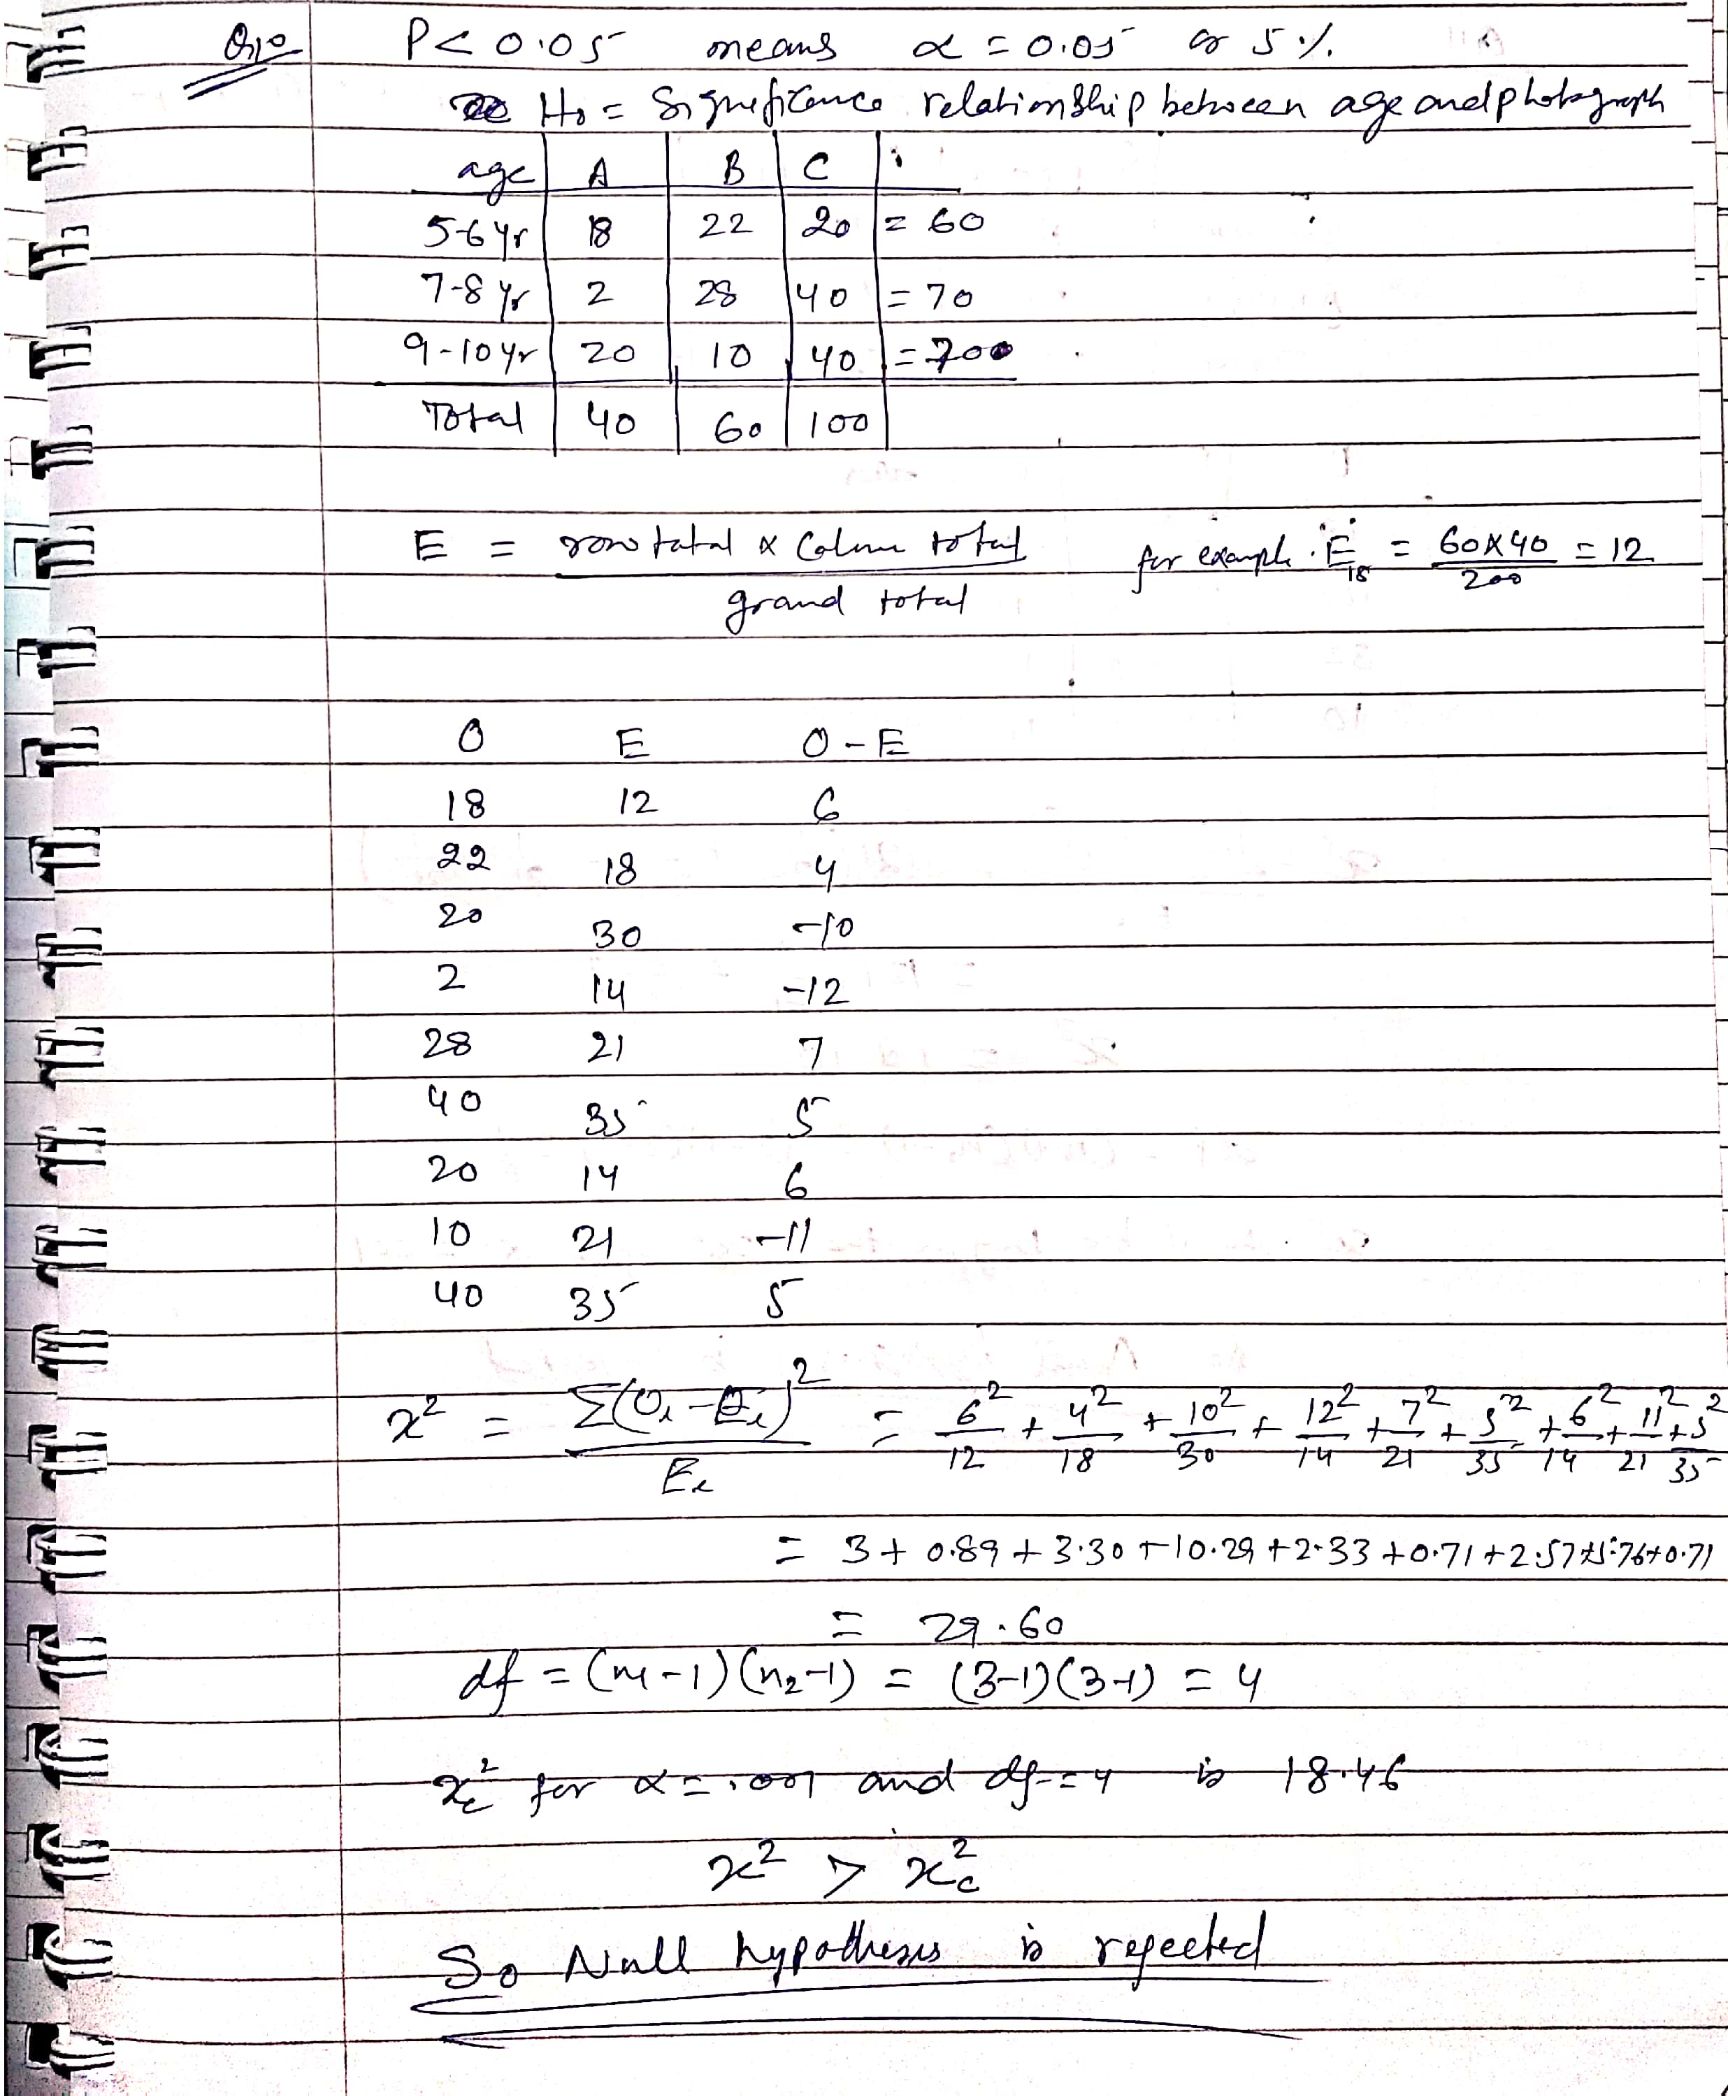 Q10 P < 0.05 means α = 0.05 or 5 %.
H₀ = Significance relationship between age and photograph
age A B C
5-6 yr 18 22 20 = 60
7-8 yr 2 28 40 = 70
9-10 yr 20 10 40 = 200
Total 40 60 100
E = row total × Colum total / grand total for example . E₁₈ = 60×40 / 200 = 12
O E O - E
18 12 6
22 18 4
20 30 -10
2 14 -12
28 21 7
40 35 5
20 14 6
10 21 -11
40 35 5
x² = Σ(Oᵢ - Eᵢ)² / Eᵢ = 6²/12 + 4²/18 + 10²/30 + 12²/14 + 7²/21 + 5²/35 + 6²/14 + 11²/21 + 5²/35
= 3 + 0.89 + 3.30 + 10.29 + 2.33 + 0.71 + 2.57 + 5.76 + 0.71
= 29.60
df = (n₁ - 1) (n₂ - 1) = (3-1) (3-1) = 4
x²c for α = .001 and df = 4 is 18.46
x² > x²c
So Null hypothesis is rejected